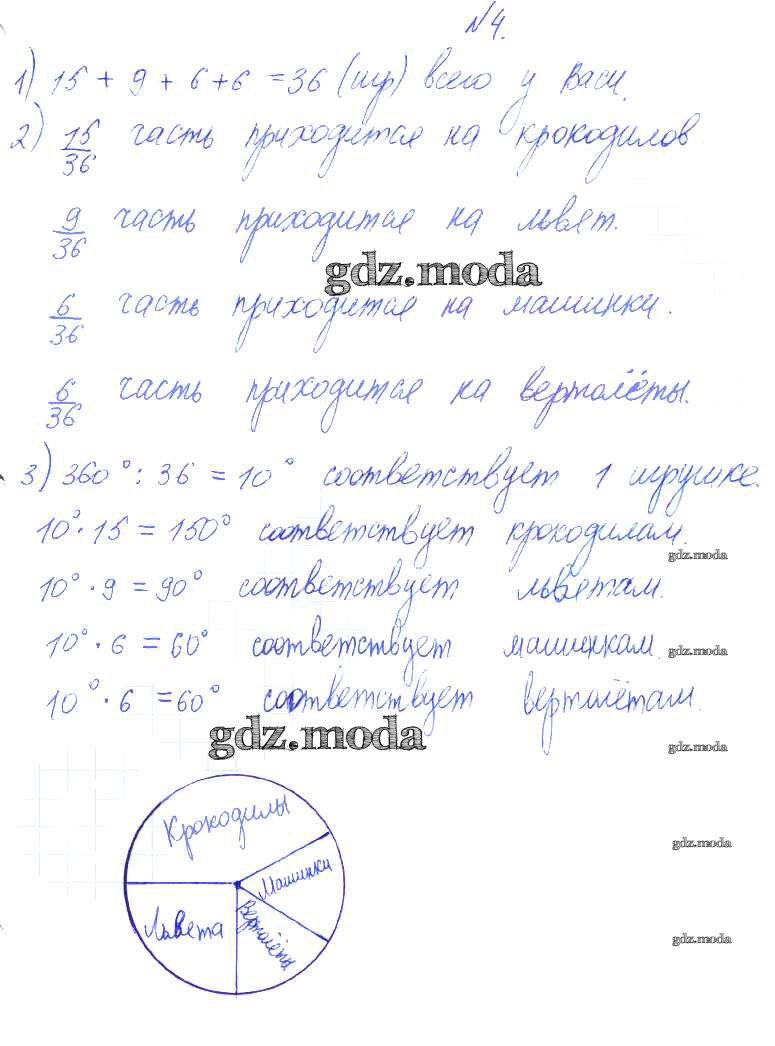 №4.
1) 15 + 9 + 6 + 6 = 36 (игр) всего у Васи.
2) 15/36 часть приходится на крокодилов
9/36 часть приходится на львят.
gdz.moda
6/36 часть приходится на машинки.
6/36 часть приходится на вертолёты.
3) 360° : 36 = 10° соответствует 1 игрушке.
10° · 15 = 150° соответствует крокодилам.
gdz.moda
10° · 9 = 90° соответствует львётам.
10° · 6 = 60° соответствует машинкам.
gdz.moda
10° · 6 = 60° соответствует вертолётам.
gdz.moda
gdz.moda
Крокодилы
gdz.moda
Машинки
Львета
Вертолёты
gdz.moda